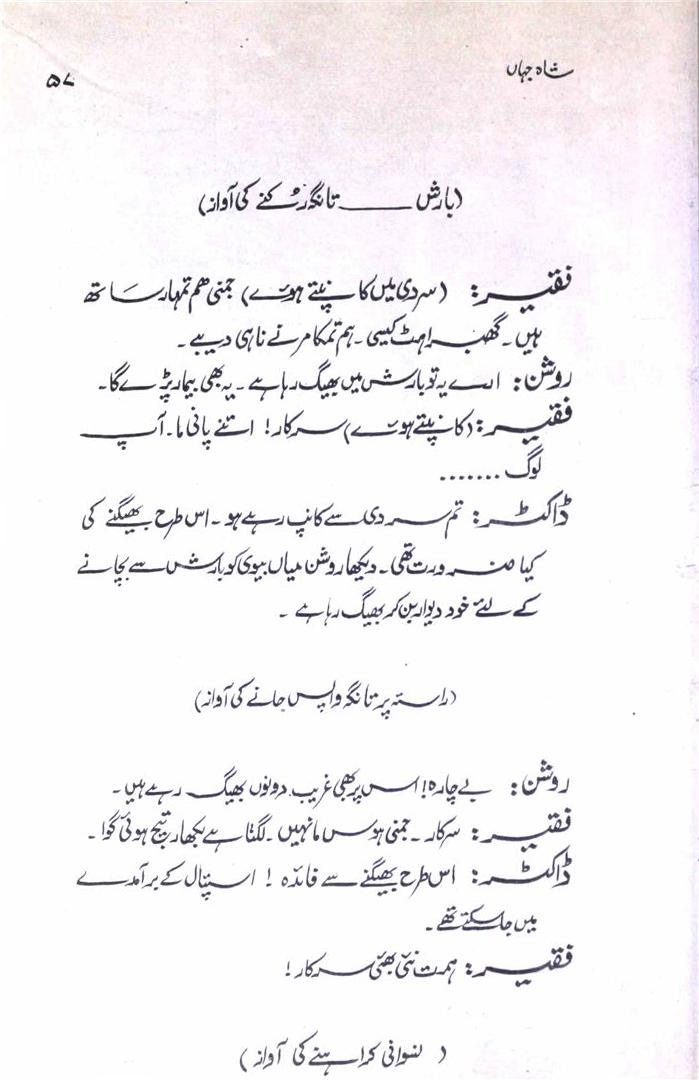 شاہ جہاں
۵۷
(بارش ــــــ تانگہ رُکنے کی آواز)
فقیر: (سردی میں کانپتے ہوئے) جمنی ھم تمہار ساتھ
ہیں۔ گھبراہٹ کیسی۔ ہم تمکا مرنے ناہی دیبے۔
روشن: ارے یہ تو بارش میں بھیگ رہا ہے۔ یہ بھی بیمار پڑے گا۔
فقیر: (کانپتے ہوئے) سرکار! اتنے پانی ما۔ آپ
لوگ .......
ڈاکٹر: تم سردی سے کانپ رہے ہو۔ اس طرح بھیگنے کی
کیا ضرورت تھی۔ دیکھا روشن میاں بیوی کو بارش سے بچانے
کے لئے خود دیوار بن کر بھیگ رہا ہے۔
(راستہ پر تانگہ واپس جانے کی آواز)
روشن: بے چارہ! اس پر بھی غریب دونوں بھیگ رہے ہیں۔
فقیر: سرکار۔ جمنی ہوس ما نہیں۔ لگتا ہے بکھار تیج ہوئی گوا۔
ڈاکٹر: اس طرح بھیگنے سے فائدہ! اسپتال کے برآمدے
میں جا سکتے تھے۔
فقیر: ہمت نئی بھئی سرکار!
(نسوانی کراہنے کی آواز)